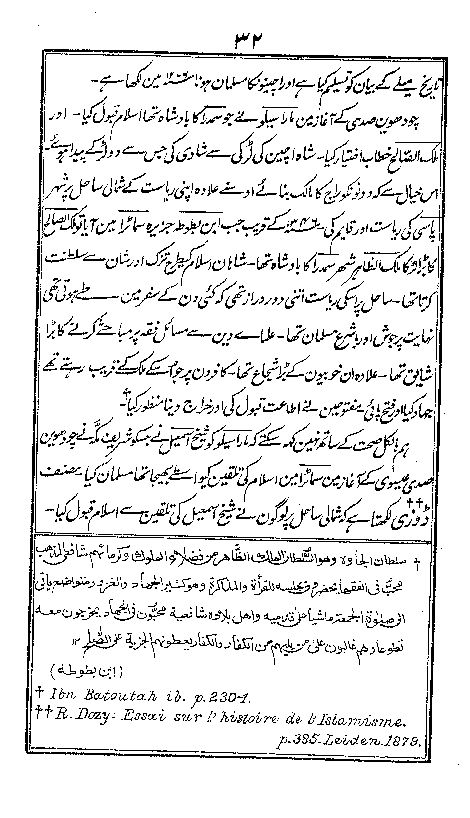 ۳۲
تاریخ میلے کے بیان کو تسلیم کیا ہے اور اچینونکا مسلمان ہونا ۱۲۰۶ مین لکھا ہے۔
چودھوین صدی کے آغاز مین مارا سیلو نے جو سمدرا کا بادشاہ تھا اسلام قبول کیا۔ اور
ملک الصالح خطاب اختیار کیا۔ شاہ اچین کی لڑکی سے شادی کی جس سے دو لڑکے پیدا ہوئے۔
اس خیال سے کہ دونونکو راج کا مالک بنائے اوسنے علاوہ اپنی ریاست کے شمالی ساحل پر شہر
پاسی کی ریاست اور قایم کی۔ ۱۳۴۶ کے قریب جب ابن بطوطہ جزیرہ سماٹرا مین آیا تو ملک الصالح
کا بڑا لڑکا ملک الظاہر شہر سمدرا کا بادشاہ تھا۔ شاہان اسلام کیطرح تزک اور شان سے سلطنت
کرتا تھا۔ ساحل پر اسکی ریاست اتنی دور دراز تھی کہ کئی دن کے سفر مین طے ہوتی تھی
نہایت پرجوش اور باشرع مسلمان تھا۔ علماے دین سے مسائل فقہ پر مباحثے کرنے کا بڑا
شایق تھا۔ علاوہ ان خوبیون کے بڑا شجاع تھا۔ کافرون پر جو اسکے ملک کے قریب رہتے تھے
جہاد کیا اور فتح پائی۔ مفتوحین نے اطاعت قبول کی اور خراج دینا منظور کیا†
ہم بالکل صحت کے ساتھ نہین کہہ سکتے کہ مارا سیلو کو شیخ اسمعیل نے جسکو شریف مکہ نے چودھوین
صدی عیسوی کے آغاز مین سماٹرا مین اسلام کی تلقین کیواسطے بھیجا تھا مسلمان کیا۔ مصنف
ڈوزی†† لکھتا ہے کہ شمالی ساحل پر لوگون نے شیخ اسمعیل کی تلقین سے اسلام قبول کیا۔
† سلطان الجاوة وهو السلطان الملك الظاهر من فضلاء الملوك وكرمائهم شافعي المذهب
محب في الفقهاء يحضرون مجلسه للقرأة والمذاكرة وهو كثير الجهاد والغزو ومتواضع ياتي
الى صلوة الجمعة ماشيا على قدميه واهل بلاده شافعية محبون في الجهاد يخرجون معه
تطوعا وهم غالبون على من يليهم من الكفار والكفار يعطونهم الجزية على الصلح ۱۲
(ابن بطوطة)
† Ibn Batoutah ib. p.230-1.
†† R. Dozy: Essai sur l'histoire de l'Islamisme.
p.385. Leiden.1879.